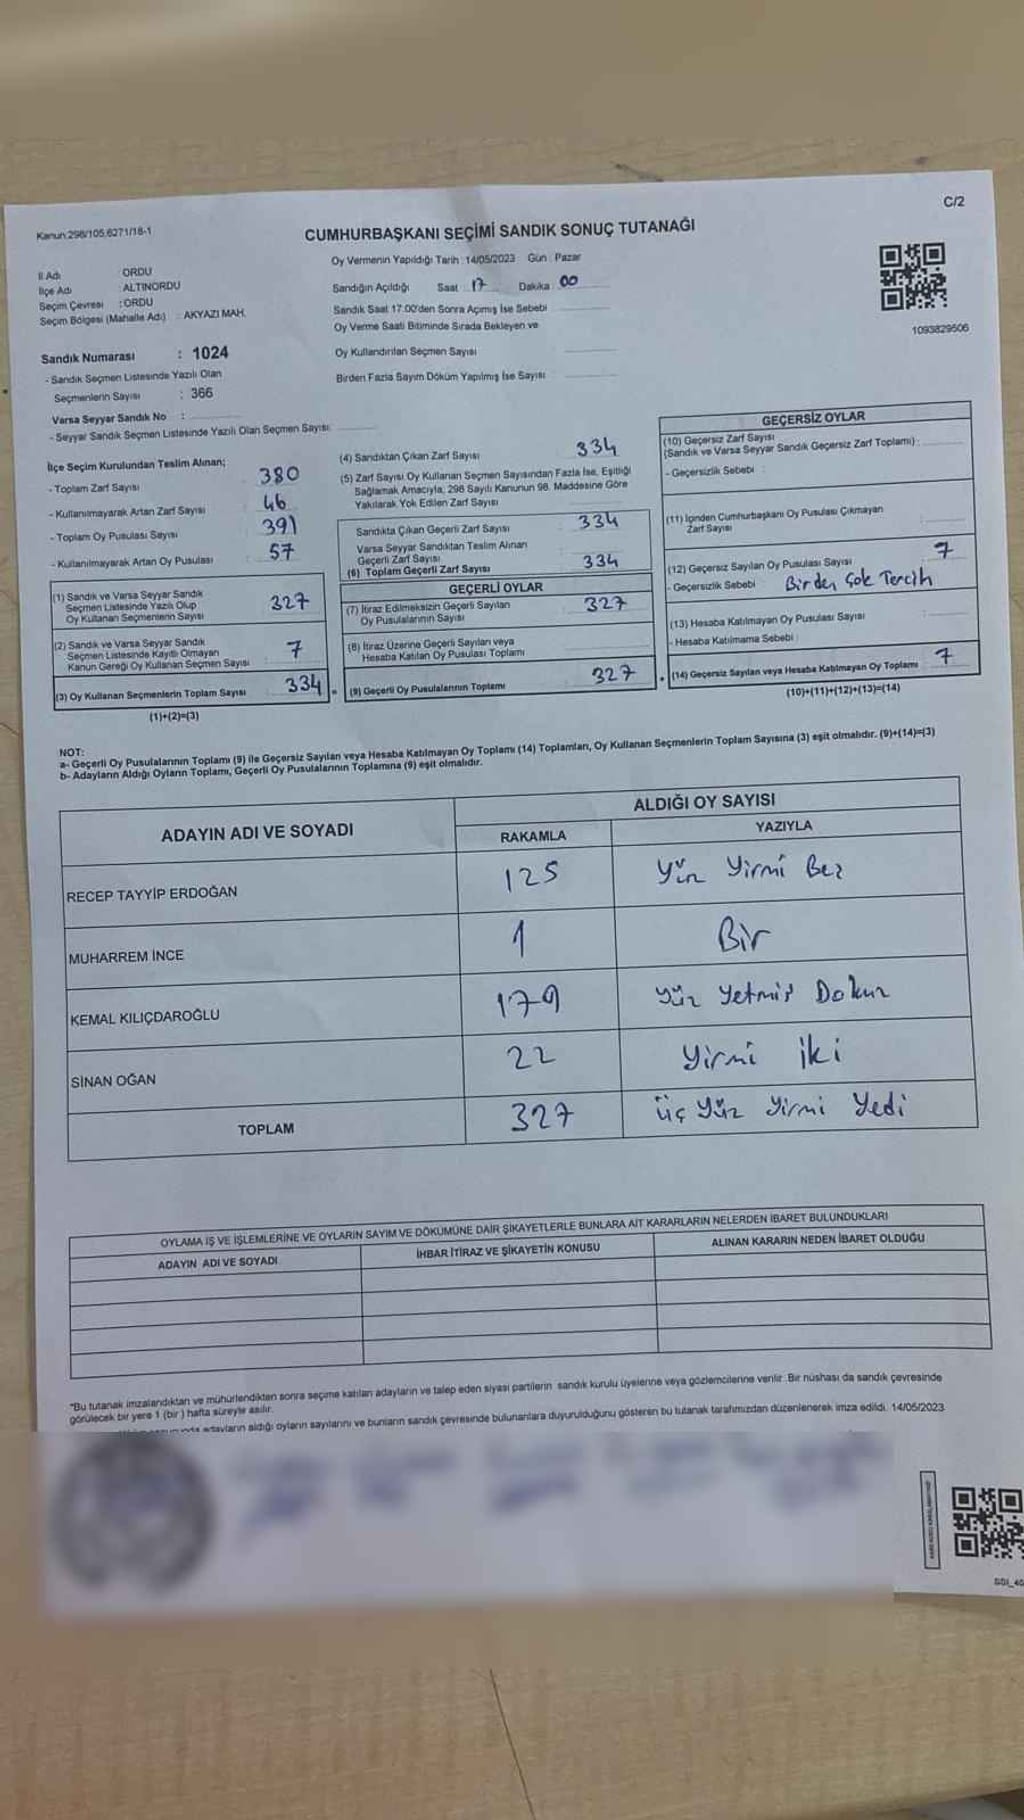 C/2
Kanun:298/105,6271/18-1
CUMHURBAŞKANI SEÇİMİ SANDIK SONUÇ TUTANAĞI
Oy Vermenin Yapıldığı Tarih : 14/05/2023 Gün : Pazar
İl Adı : ORDU
İlçe Adı : ALTINORDU
Seçim Çevresi : ORDU
Seçim Bölgesi (Mahalle Adı) : AKYAZI MAH.
Sandığın Açıldığı Saat : 17 Dakika : 00
Sandık Saat 17:00'den Sonra Açımış İse Sebebi
Oy Verme Saati Bitiminde Sırada Bekleyen ve
Oy Kullandırılan Seçmen Sayısı
Birden Fazla Sayım Döküm Yapılmış İse Sayısı
1093829506
Sandık Numarası : 1024
- Sandık Seçmen Listesinde Yazılı Olan
Seçmenlerin Sayısı : 366
Varsa Seyyar Sandık No :
- Seyyar Sandık Seçmen Listesinde Yazılı Olan Seçmen Sayısı:
İlçe Seçim Kurulundan Teslim Alınan;
- Toplam Zarf Sayısı 380
- Kullanılmayarak Artan Zarf Sayısı 46
- Toplam Oy Pusulası Sayısı 391
- Kullanılmayarak Artan Oy Pusulası 57
(1) Sandık ve Varsa Seyyar Sandık
Seçmen Listesinde Yazılı Olup
Oy Kullanan Seçmenlerin Sayısı 327
(2) Sandık ve Varsa Seyyar Sandık
Seçmen Listesinde Kayıtlı Olmayan
Kanun Gereği Oy Kullanan Seçmen Sayısı 7
(3) Oy Kullanan Seçmenlerin Toplam Sayısı 334
(1)+(2)=(3)
(4) Sandıktan Çıkan Zarf Sayısı 334
(5) Zarf Sayısı Oy Kullanan Seçmen Sayısından Fazla İse, Eşitliği
Sağlamak Amacıyla, 298 Sayılı Kanunun 98. Maddesine Göre
Yakılarak Yok Edilen Zarf Sayısı
Sandıkta Çıkan Geçerli Zarf Sayısı 334
Varsa Seyyar Sandıktan Teslim Alınan
Geçerli Zarf Sayısı
(6) Toplam Geçerli Zarf Sayısı 334
GEÇERLİ OYLAR
(7) İtiraz Edilmeksizin Geçerli Sayılan
Oy Pusulalarının Sayısı 327
(8) İtiraz Üzerine Geçerli Sayılan veya
Hesaba Katılan Oy Pusulası Toplamı
(9) Geçerli Oy Pusulalarının Toplamı 327
GEÇERSİZ OYLAR
(10) Geçersiz Zarf Sayısı
(Sandık ve Varsa Seyyar Sandık Geçersiz Zarf Toplamı) :
- Geçersizlik Sebebi :
(11) İçinden Cumhurbaşkanı Oy Pusulası Çıkmayan
Zarf Sayısı
(12) Geçersiz Sayılan Oy Pusulası Sayısı 7
- Geçersizlik Sebebi Birden Çok Tercih
(13) Hesaba Katılmayan Oy Pusulası Sayısı
- Hesaba Katılmama Sebebi :
(14) Geçersiz Sayılan veya Hesaba Katılmayan Oy Toplamı 7
(10)+(11)+(12)+(13)=(14)
NOT:
a- Geçerli Oy Pusulalarının Toplamı (9) ile Geçersiz Sayılan veya Hesaba Katılmayan Oy Toplamı (14) Toplamları, Oy Kullanan Seçmenlerin Toplam Sayısına (3) eşit olmalıdır. (9)+(14)=(3)
b- Adayların Aldığı Oyların Toplamı, Geçerli Oy Pusulalarının Toplamına (9) eşit olmalıdır.
ADAYIN ADI VE SOYADI ALDIĞI OY SAYISI
RAKAMLA YAZIYLA
RECEP TAYYİP ERDOĞAN 125 Yüz Yirmi Beş
MUHARREM İNCE 1 Bir
KEMAL KILIÇDAROĞLU 179 Yüz Yetmiş Dokuz
SİNAN OĞAN 22 Yirmi İki
TOPLAM 327 Üç Yüz Yirmi Yedi
OYLAMA İŞ VE İŞLEMLERİNE VE OYLARIN SAYIM VE DÖKÜMÜNE DAİR ŞİKAYETLERLE BUNLARA AİT KARARLARIN NELERDEN İBARET BULUNDUKLARI
ADAYIN ADI VE SOYADI İHBAR İTİRAZ VE ŞİKAYETİN KONUSU ALINAN KARARIN NEDEN İBARET OLDUĞU
"Bu tutanak imzalandıktan ve mühürlendikten sonra seçime katılan adayların ve talep eden siyasi partilerin sandık kurulu üyelerine veya gözlemcilerine verilir. Bir nüshası da sandık çevresinde
görülecek bir yere 1 (bir) hafta süreyle asılır.
adayların aldığı oyların sayılarını ve bunların sandık çevresinde bulunanlara duyurulduğunu gösteren bu tutanak tarafımızdan düzenlenerek imza edildi. 14/05/2023